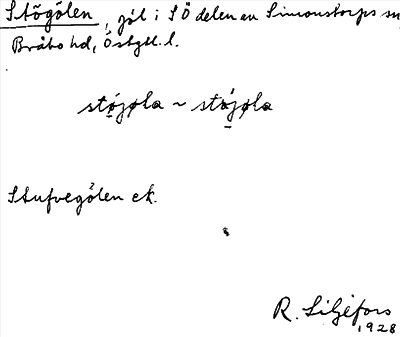 Stögölen, göl i SÖ delen av Simonstorps sn
Bråbo hd, Östgtl. l.
stójøla ~ stájøla
Stufvegölen ek.
R. Liljefors
1928